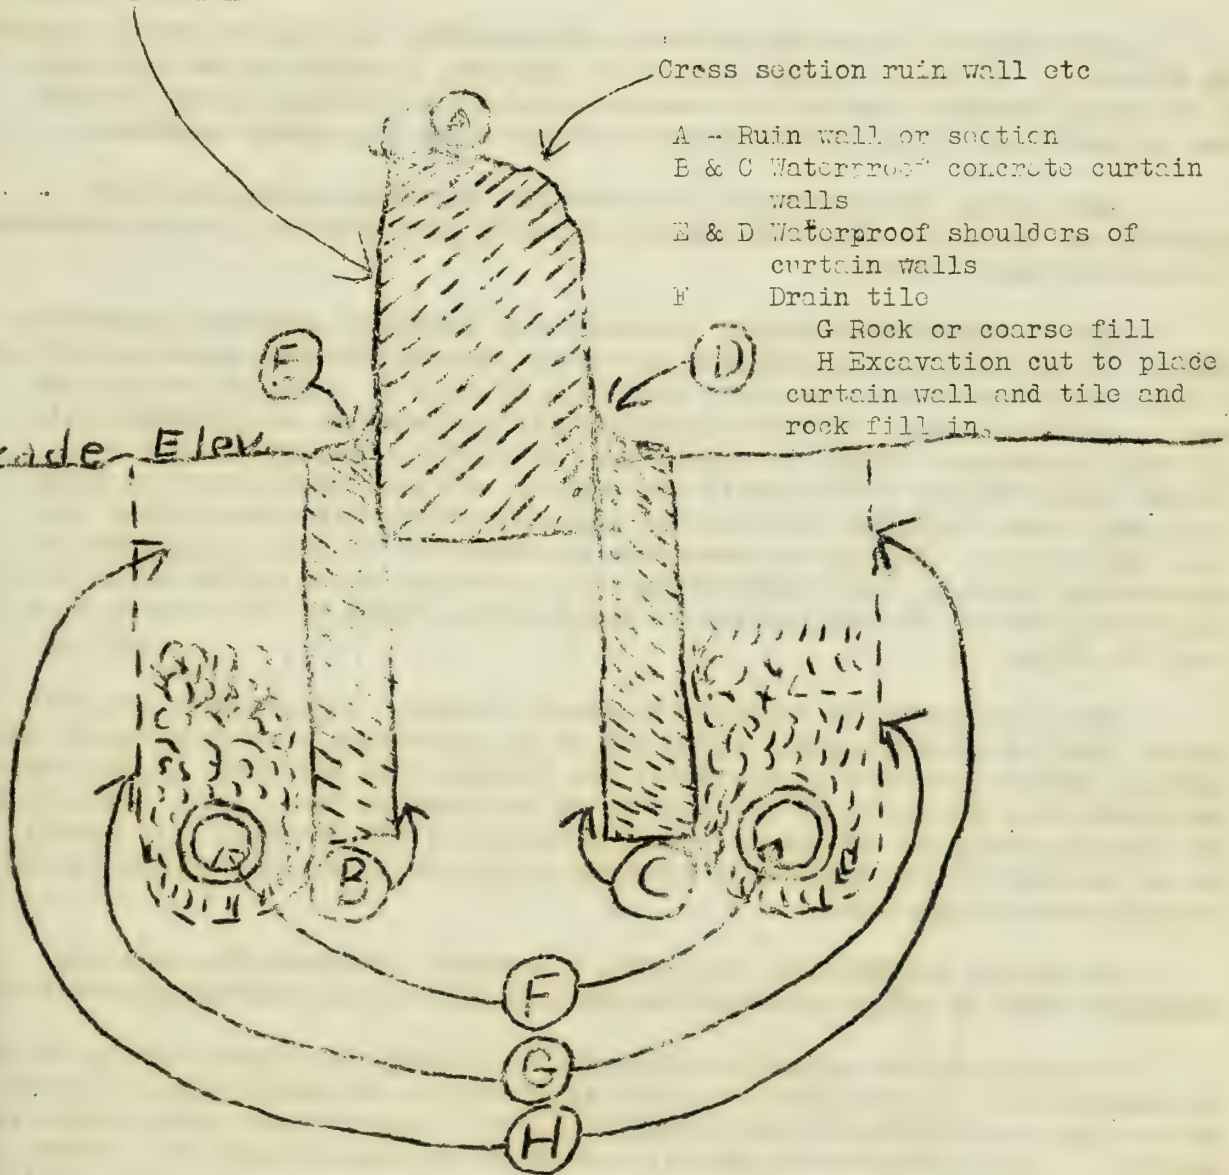 Cross section ruin wall etc
A - Ruin wall or section
B & C Waterproof concrete curtain
walls
E & D Waterproof shoulders of
curtain walls
F Drain tile
G Rock or coarse fill
H Excavation cut to place
curtain wall and tile and
rock fill in.
A
E
D
Elev.
B
C
F
G
H